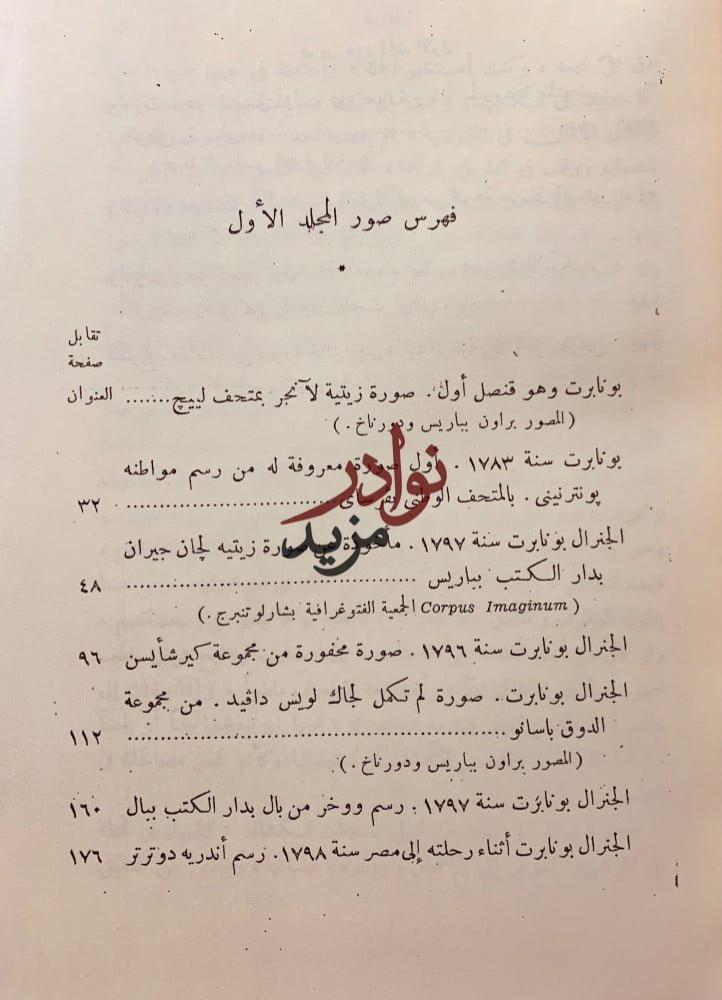 فهرس صور المجلد الأول
*
تقابل
صفحة
بونابرت وهو قنصل أول. صورة زيتية لآنجر بمتحف لييچ ....... العنوان
(المصور براون بباريس ودورناخ.)
بونابرت سنة ١٧٨٣. أول صورة معروفة له من رسم مواطنه
پونترنيني. بالمتحف الوطني بفرساي ................ ٣٢
الجنرال بونابرت سنة ١٧٩٧. مأخوذة عن صورة زيتيه لجان جيران
بدار الكتب بباريس ................ ٤٨
(Corpus Imaginum الجمعية الفتوغرافية بشارلوتنبرج.)
الجنرال بونابرت سنة ١٧٩٦. صورة محفورة من مجموعة كيرشأيسن ٩٦
الجنرال بونابرت. صورة لم تكمل لجاك لويس داڤيد. من مجموعة
الدوق باسانو ................ ١١٢
(المصور براون بباريس ودورناخ.)
الجنرال بونابرت سنة ١٧٩٧. رسم ووخر من بال بدار الكتب ببال ١٦٠
الجنرال بونابرت أثناء رحلته إلى مصر سنة ١٧٩٨. رسم أندريه دوترتر ١٧٦
نوادر
مزيد